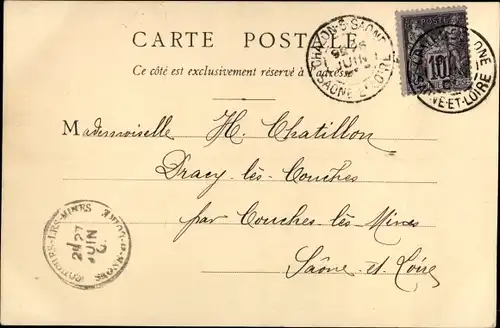 CARTE POSTALE
Ce côté est exclusivement réservé à l'adresse
CHALON-S-SAONE
JUIN
SAONE-ET-LOIRE
POSTE
10
SAONE-ET-LOIRE
Mademoiselle H. Chatillon
Dracy-lès-Couches
par Couches les Mines
Saône-et-Loire
COUCHES-LES-MINES
27
JUIN